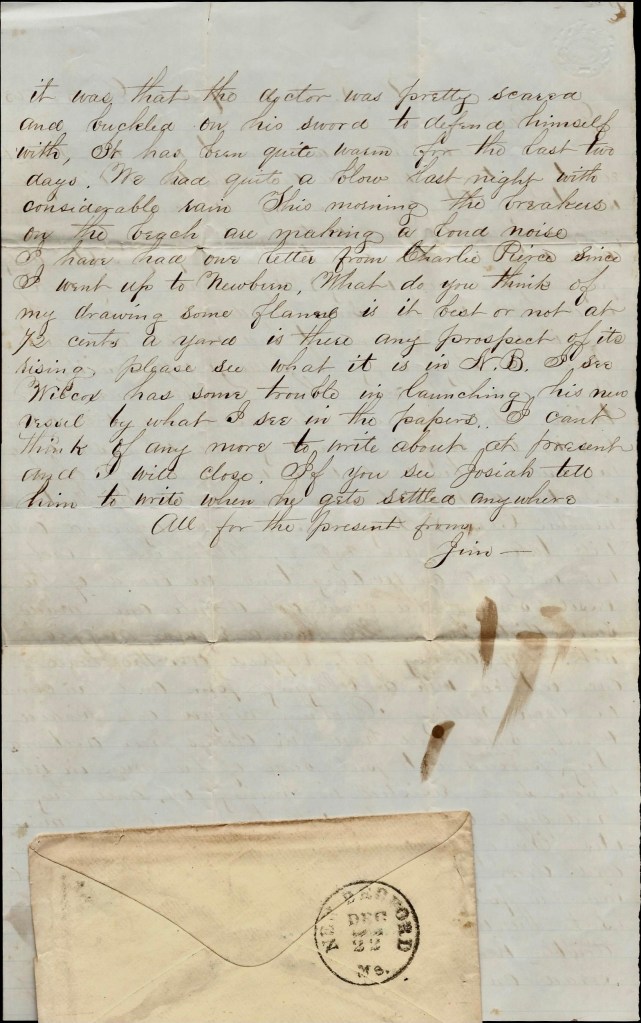 it was that the doctor was pretty scared
and buckled on his sword to defend himself
with, It has been quite warm for the last two
days. We had quite a blow last night with
considerable rain This morning the breakers
on the beach are making a loud noise
I have had one letter from Charlie Pierce since
I went up to Newbern. What do you think of
my drawing some flannel is it best or not at
72 cents a yard is there any prospect of its
rising, please see what it is in N.B. I see
Wilcox has some trouble in launching his new
vessel by what I see in the papers. I cant
think of any more to write about at present
and I will close. If you see Josiah tell
him to write when he gets settled anywhere
All for the present from
Jim —
NEW BEDFORD
DEC
22
Ms.